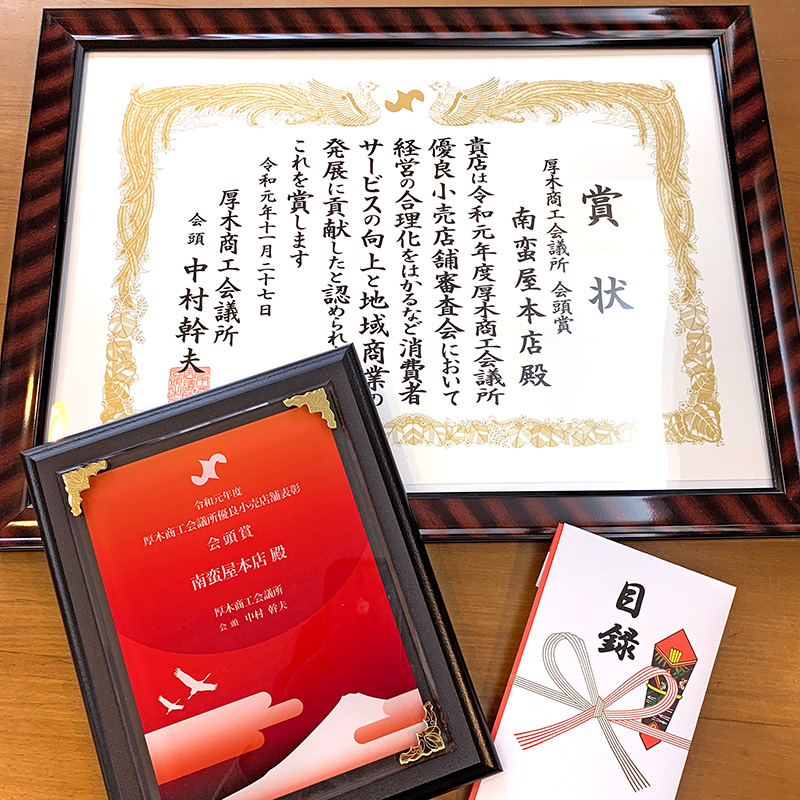 賞状
厚木商工会議所 会頭賞
南蛮屋本店殿
貴店は令和元年度厚木商工会議所
優良小売店舗審査会において
経営の合理化をはかるなど消費者
サービスの向上と地域商業の
発展に貢献したと認められ
これを賞します
令和元年十一月二十七日
厚木商工会議所
会頭 中村幹夫
令和元年度
厚木商工会議所優良小売店舗表彰
会頭賞
南蛮屋本店 殿
厚木商工会議所
会頭 中村 幹夫
目録